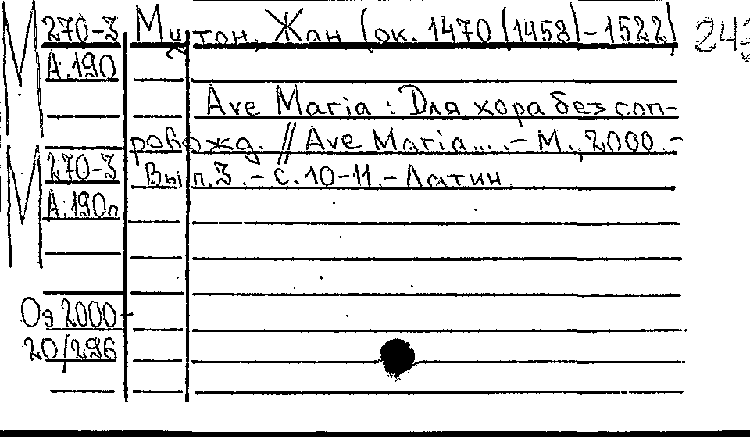 М 270-3 Мутон, Жан (ок. 1470 (1458)-1522) 243
А.190
Ave Maria : Для хора без соп-
ровожд. // Ave Maria... .- М., 2000.-
М 270-3 Вып.3.- с.10-11.- Латин.
А.190л
Оз 2000
20/296